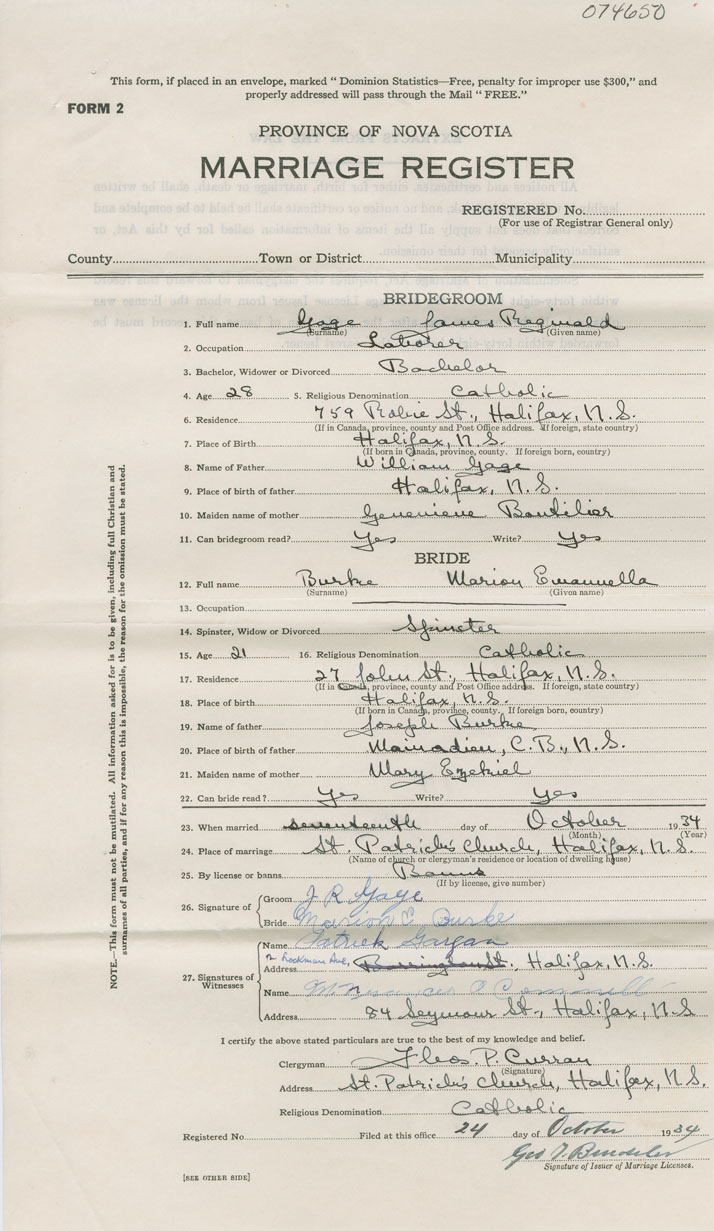 074650
This form, if placed in an envelope, marked " Dominion Statistics—Free, penalty for improper use $300," and
properly addressed will pass through the Mail " FREE."
FORM 2
PROVINCE OF NOVA SCOTIA
MARRIAGE REGISTER
REGISTERED No.
(For use of Registrar General only)
County Town or District Municipality
BRIDEGROOM
1. Full name Gage James Reginald
(Surname) (Given name)
2. Occupation Laborer
3. Bachelor, Widower or Divorced Bachelor
4. Age 28 5. Religious Denomination Catholic
6. Residence 759 Robie St., Halifax, N.S.
(If in Canada, province, county and Post Office address. If foreign, state country)
7. Place of Birth Halifax, N.S.
(If born in Canada, province, county. If foreign born, country)
8. Name of Father William Gage
9. Place of birth of father Halifax, N.S.
10. Maiden name of mother Genevieve Boutilier
11. Can bridegroom read? Yes Write? Yes
BRIDE
12. Full name Burke Marion Emannella
(Surname) (Given name)
13. Occupation
14. Spinster, Widow or Divorced Spinster
15. Age 21 16. Religious Denomination Catholic
17. Residence 27 John St., Halifax, N.S.
(If in Canada, province, county and Post Office address. If foreign, state country)
18. Place of birth Halifax, N.S.
(If born in Canada, province, county. If foreign born, country)
19. Name of father Joseph Burke
20. Place of birth of father Mainadieu, C.B., N.S.
21. Maiden name of mother Mary Ezekiel
22. Can bride read? Yes Write? Yes
23. When married seventeenth day of October 1934
(Month) (Year)
24. Place of marriage St. Patrick's Church, Halifax, N.S.
(Name of church or clergyman's residence or location of dwelling house)
25. By license or banns Banns
(If by license, give number)
26. Signature of Groom J R Gage
Bride Marion E. Burke
27. Signatures of Witnesses
Name Patrick Gargan
Address 2 Rockman Ave, Barrington St., Halifax, N.S.
Name
Address 84 Seymour St., Halifax, N.S.
I certify the above stated particulars are true to the best of my knowledge and belief.
Clergyman Theos. P. Curran
(Signature)
Address St. Patrick's Church, Halifax, N.S.
Religious Denomination Catholic
Registered No. Filed at this office 24 day of October 1934
Signature of Issuer of Marriage Licenses.
[SEE OTHER SIDE]
NOTE.—This form must not be mutilated. All information asked for is to be given, including full Christian and
surnames of all parties, and if for any reason this is impossible, the reason for the omission must be stated.